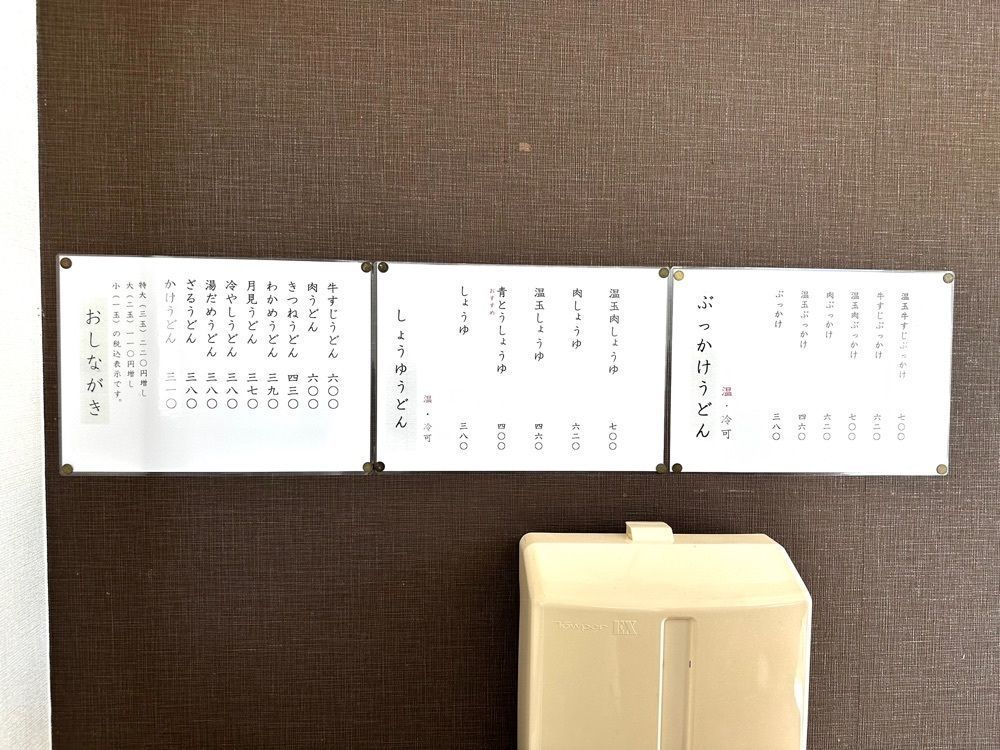 温玉牛すじぶっかけ 七〇〇
牛すじぶっかけ 六二〇
温玉肉ぶっかけ 七〇〇
肉ぶっかけ 六二〇
温玉ぶっかけ 四六〇
ぶっかけ 三八〇
温・冷可
ぶっかけうどん
温玉肉しょうゆ 七〇〇
肉しょうゆ 六二〇
温玉しょうゆ 四六〇
青とうしょうゆ 四〇〇
おすすめ
しょうゆ 三八〇
温・冷可
しょうゆうどん
牛すじうどん 六〇〇
肉うどん 六〇〇
きつねうどん 四三〇
わかめうどん 三九〇
月見うどん 三七〇
冷やしうどん 三八〇
湯だめうどん 三八〇
ざるうどん 三八〇
かけうどん 三一〇
特大(三玉)二二〇円増し
大(二玉)一一〇円増し
小(一玉)の税込表示です。
おしながき
Towper EX